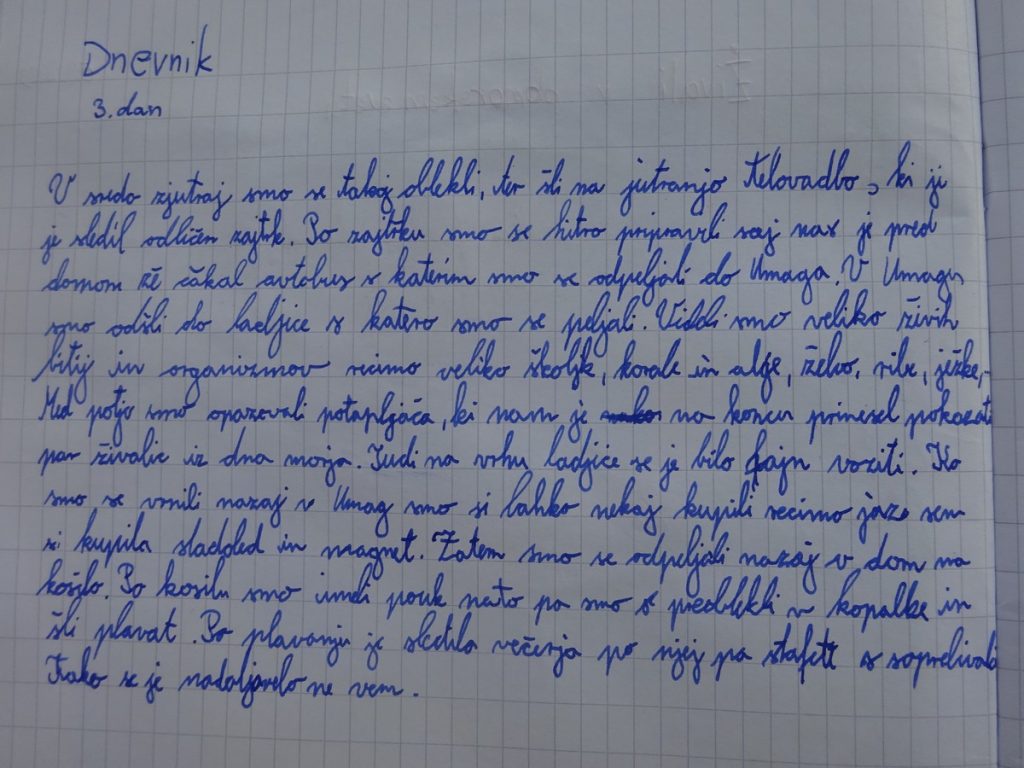 Dnevnik
3. dan
V sredo zjutraj smo se takoj oblekli, ter šli na jutranjo telovadbo, ki ji
je sledil odličen zajtrk. Po zajtrku smo se hitro pripravili saj nas je pred
domom že čakal avtobus s katerim smo se odpeljali do Umaga. V Umagu
smo odšli do ladjice s katero smo se peljali. Videli smo veliko živih
bitij in organizmov recimo veliko školjk, korale in alge, želvo, ribe, ježke,...
Med potjo smo opazovali potapljača, ki nam je na koncu prinesel pokazati
par živalic iz dna morja. Tudi na vrhu ladjice se je bilo fajn voziti. Ko
smo se vrnili nazaj v Umag smo si lahko nekaj kupili recimo jaz sem
si kupila sladoled in magnet. Zatem smo se odpeljali nazaj v dom na
kosilo. Po kosilu smo imeli pouk nato pa smo s preoblekli v kopalke in
šli plavat. Po plavanju je sledila večerja po njej pa štafete s
Kako se je nadaljevalo ne vem.